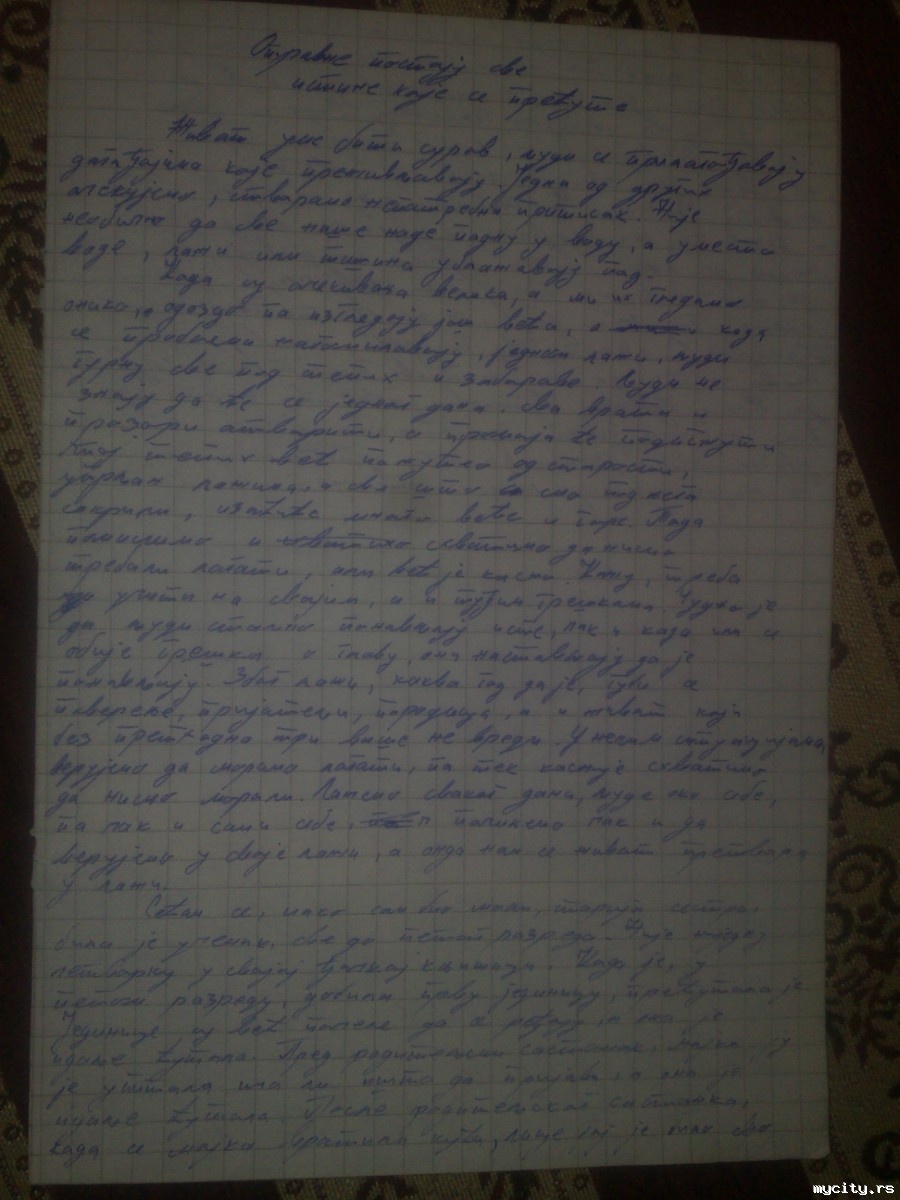 Отровне постају све
истине које се прећуте
Живот уме бити суров, људи се прилагођавају
догађајима које преживљавају. Једни од других
очекујемо, стварамо непотребни притисак. Није
необично да све наше наде падну у воду, а уместо
воде, лажи или тишина ублажавају пад.
Када су очекивања велика, а ми их гледамо
онако, одоздо па изгледају још већа, а и када
се проблеми нагомилавају, једном лажи, људи
гурну све под тепих и забораве. Људи не
знају да ће се једног дана, сва врата и
прозори отворити, и промаја ће подигнути
тај тепих већ пожутео од старости,
упрљан лажима, а све што смо под њега
сакрили, изаћиће много веће и горе. Тада
помислимо и схватимо да нисмо
требали лагати, али већ је касно. Кажу, треба
учити на својим, а и туђим грешкама. Чудно је
да људи стално понављају исте, чак и када им се
обије грешка о главу, они настављају да је
понављају. Због лажи, каква год да је, губи се
поверење, пријатељи, породица, а и живот који
без претходна три више не вреди. У неким ситуацијама,
верујемо да морамо лагати, па тек касније схватимо
да нисмо морали. Лажемо сваког дана, људе око себе,
па чак и сами себе, почињемо чак и да
верујемо у своје лажи, а онда нам се живот претвара
у лажи.
Сећам се, иако сам био мали, старија сестра
била је ученик, све до петог разреда. Није имала
четворку у својој ђачкој књижици. Када је, у
петом разреду, добила прву јединицу, прећутала је
Јединице су већ почеле да се ређају, а она је
и даље ћутала. Пред родитељски састанак, мајка ју
је упитала има ли нешто да пријави, а она је
и даље ћутала. После родитељског састанка,
када се мајка вратила кући, лице јој је било
mycity.rs